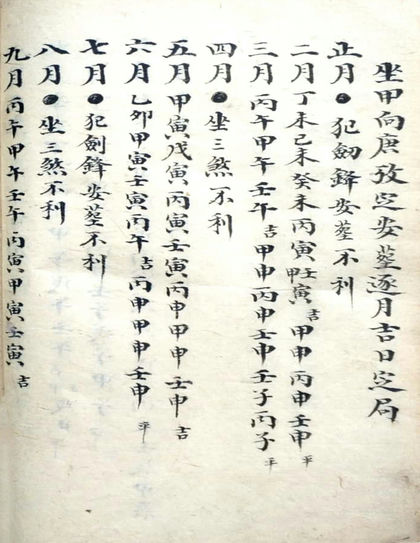 坐甲向庚攷定安塟逐月吉日定局
正月●犯劒鋒安塟不利
二月丁未己未癸未丙寅甲壬寅吉甲申丙申壬申平
三月丙午甲午壬午吉甲申丙申壬申壬子丙子平
四月●坐三煞不利
五月甲寅戊寅丙寅壬寅丙申甲申壬申吉
六月乙卯甲寅壬寅丙午吉丙申甲申壬申平
七月●犯劍鋒安塟不利
八月●坐三煞不利
九月丙午甲午壬午丙寅甲寅壬寅吉